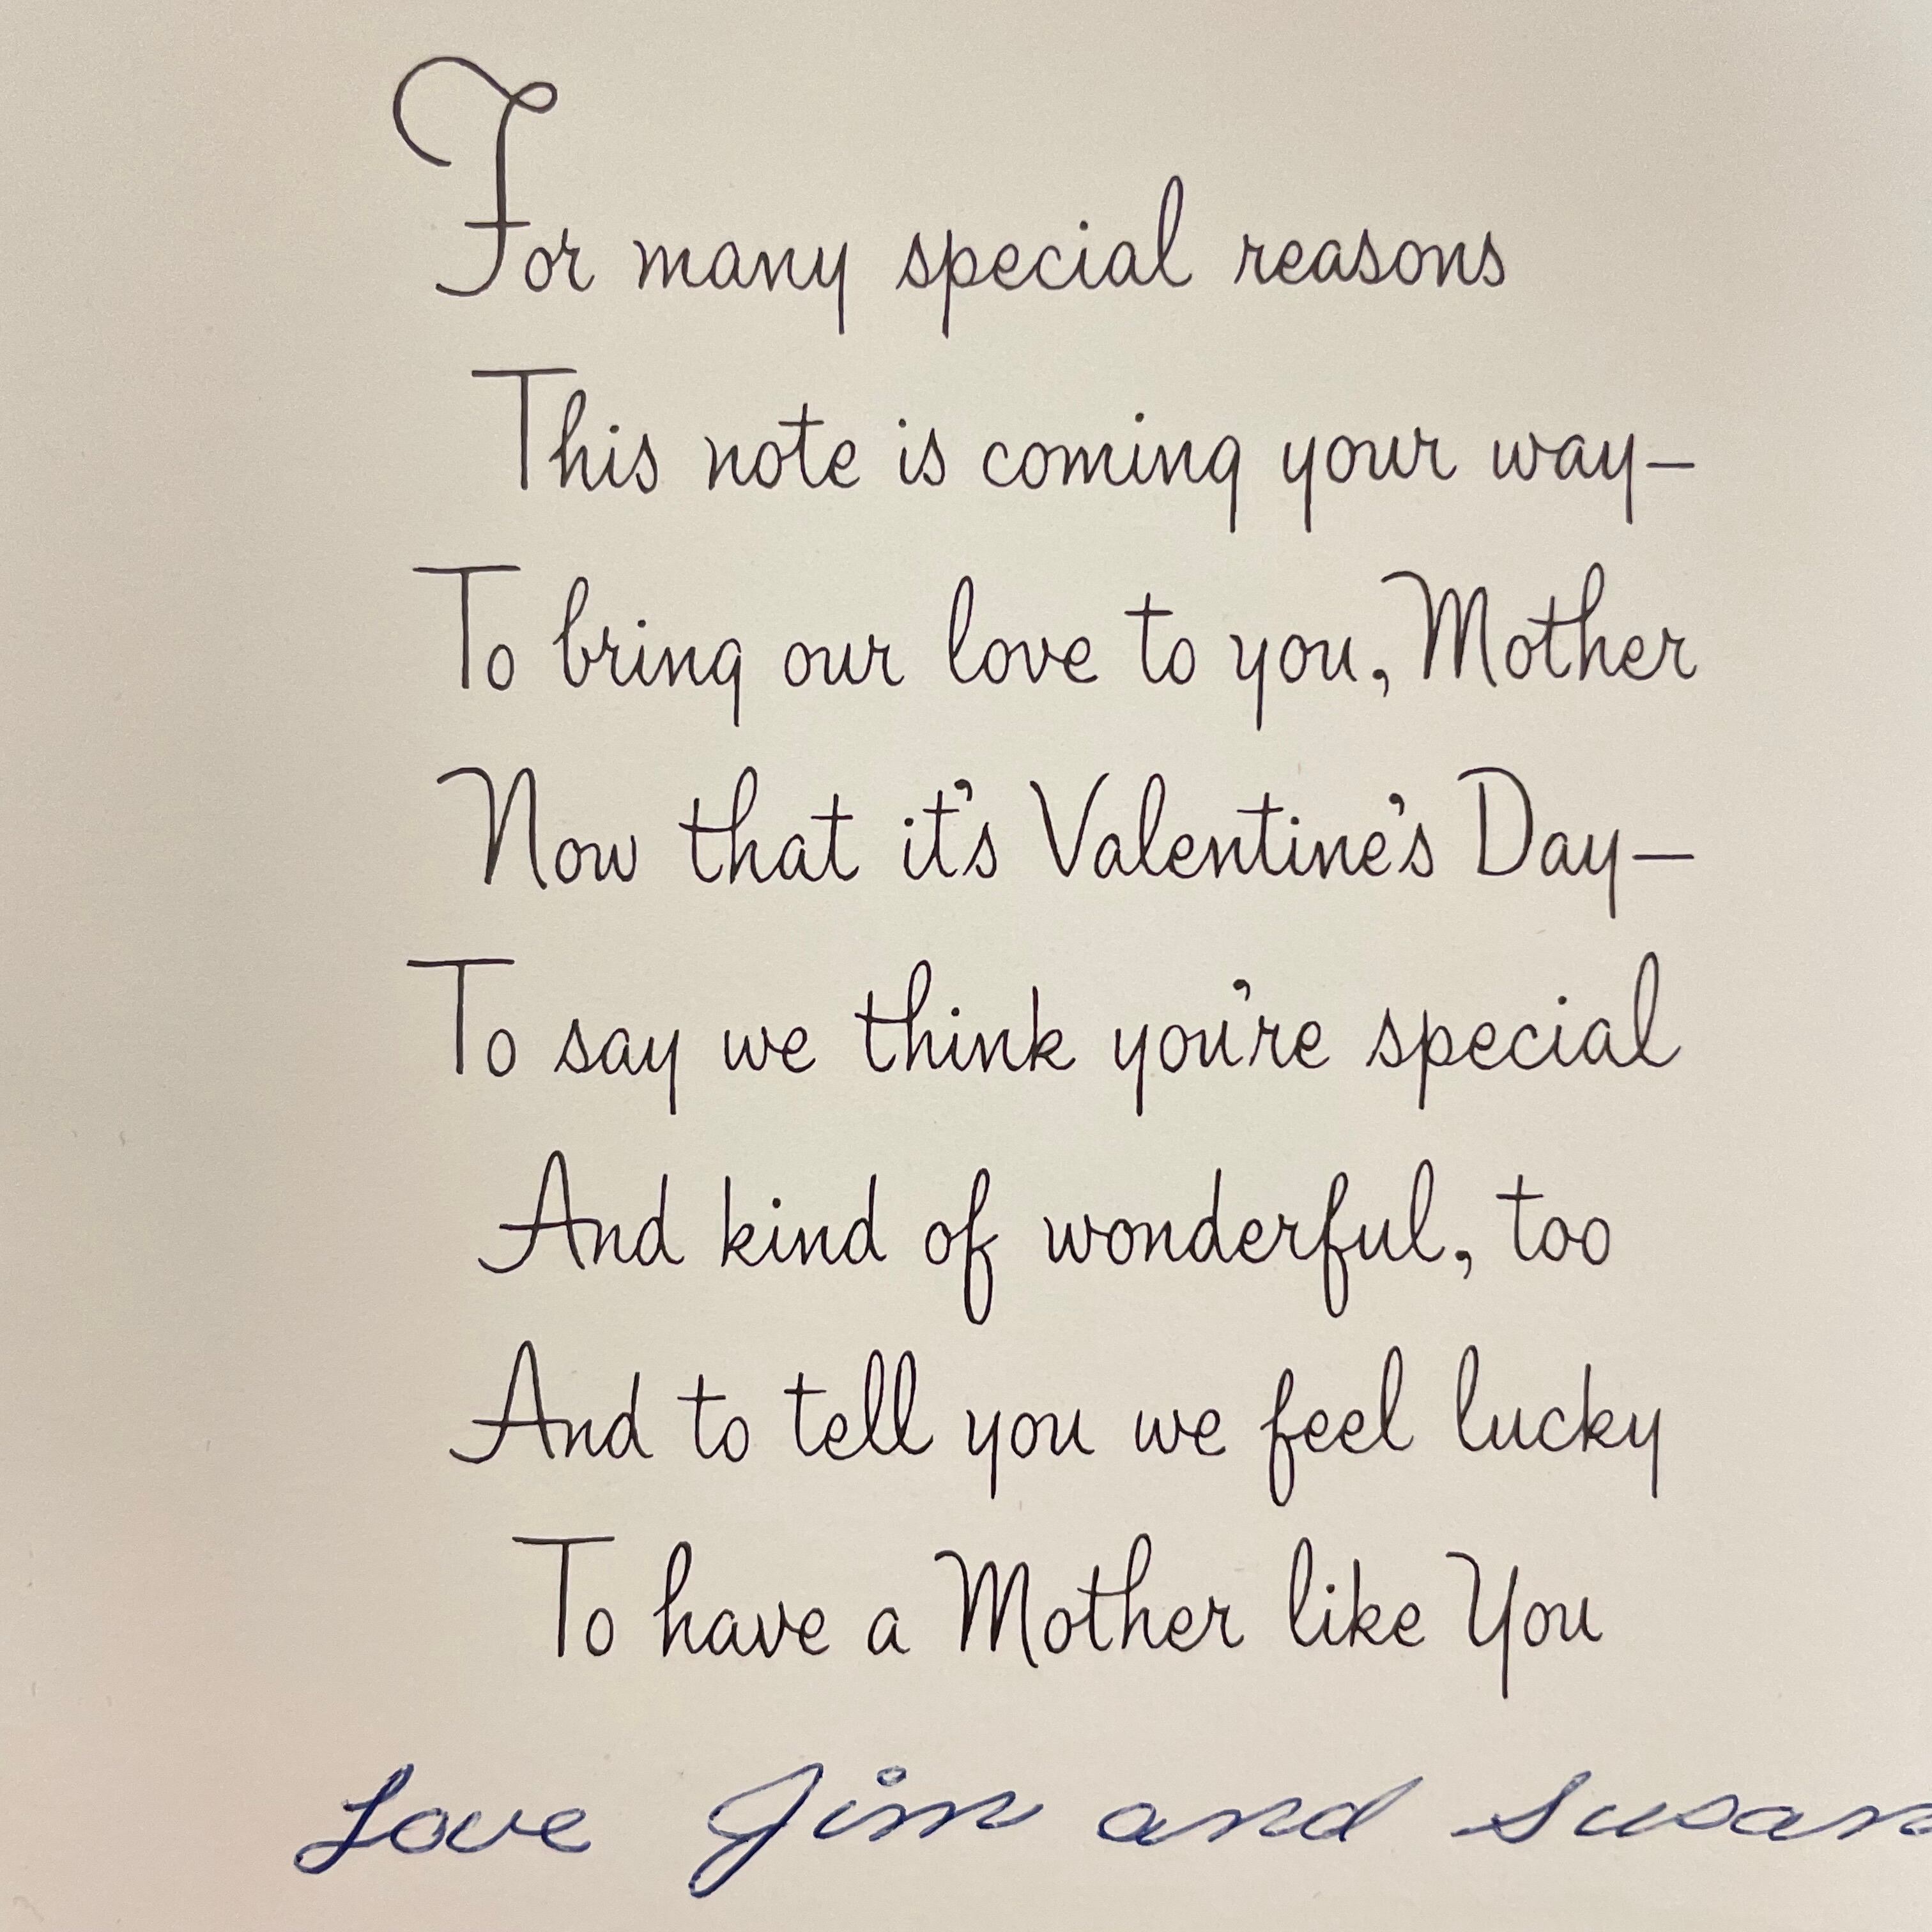 For many special reasons
This note is coming your way—
To bring our love to you, Mother
Now that it's Valentine's Day—
To say we think you're special
And kind of wonderful, too
And to tell you we feel lucky
To have a Mother like You
Love Jim and Susan